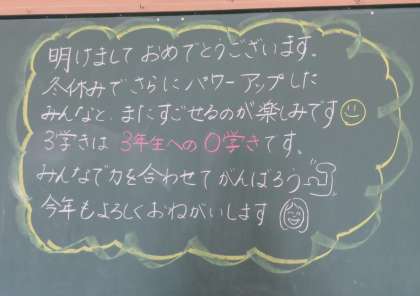 明けまして おめでとうございます。
冬休みでさらに パワーアップした
みんなと、またすごせるのが楽しみです
3学きは 3年生への0学きです。
みんなで力を合わせて がんばろう
今年もよろしくおねがいします